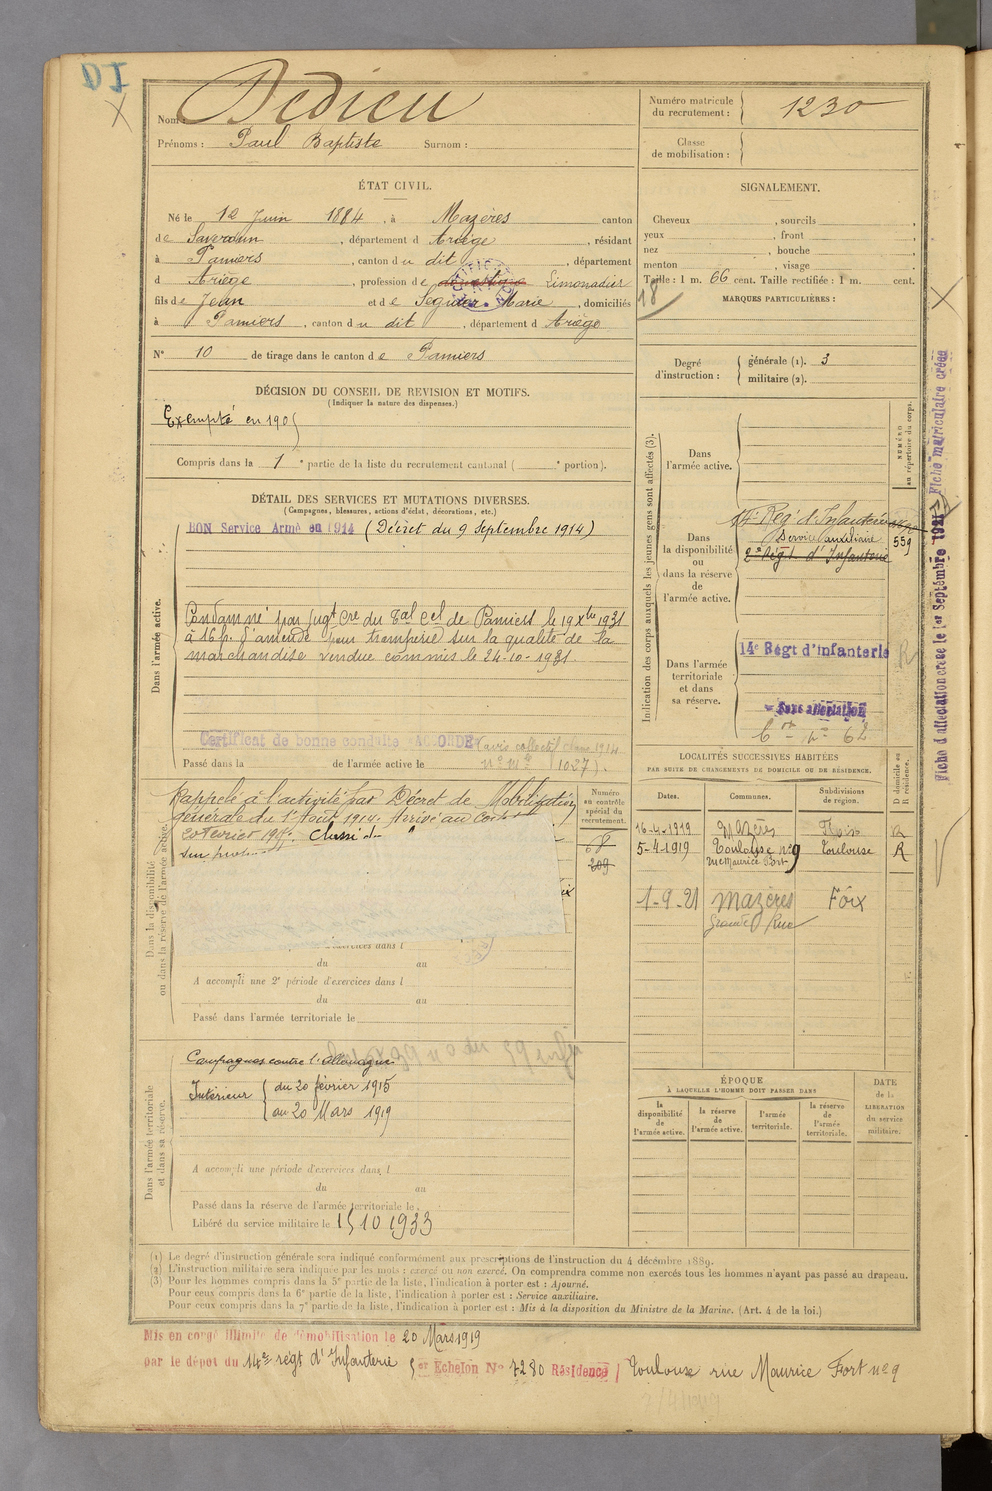 DI
Nom: Dedieu
Prénoms : Paul Baptiste Surnom :
ÉTAT CIVIL.
Né le 12 Juin 1884, à Mazères canton
de Saverdun, département d Ariège, résidant
à Pamiers, canton du dit, département
d Ariège, profession de domestique Limonadier
fils de Jean et de Seguier Marie, domiciliés
à Pamiers, canton du dit, département d Ariège
N° 10 de tirage dans le canton de Pamiers
DÉCISION DU CONSEIL DE REVISION ET MOTIFS.
(Indiquer la nature des dispenses.)
Exempté en 1905
Compris dans la 1e partie de la liste du recrutement cantonal ( e portion).
DÉTAIL DES SERVICES ET MUTATIONS DIVERSES.
(Campagnes, blessures, actions d'éclat, décorations, etc.)
Dans l'armée active.
BON Service Armé en 1914 (Décret du 9 Septembre 1914)
Condamné par jugt cre du Tal cel de Pamiers le 19 Xbre 1931
à 16 f. d'amende pour tromperie sur la qualité de la
marchandise vendue commis le 24-10-1931
Certificat de bonne conduite ACCORDÉ (avis collectif classe 1914
Passé dans la de l'armée active le n° mle 1027).
Dans la disponibilité
ou dans la réserve de l'armée active.
Rappelé à l'activité par Décret de Mobilisation
générale du 1er Août 1914. Arrivé au Corps
20 février 1915. Classé
exercices dans l
du au
A accompli une 2e période d'exercices dans l
du au
Passé dans l'armée territoriale le
Dans l'armée territoriale
et dans sa réserve.
Campagnes contre l'Allemagne
Intérieur du 20 février 1915
au 20 Mars 1919
A accompli une période d'exercices dans l
du au
Passé dans la réserve de l'armée territoriale le
Libéré du service militaire le 15 10 1933
Numéro
au contrôle
spécial du
recrutement.
209
Numéro matricule
du recrutement : 1230
Classe
de mobilisation :
SIGNALEMENT.
Cheveux , sourcils ,
yeux , front ,
nez , bouche ,
menton , visage
Taille : 1 m. 66 cent. Taille rectifiée : 1 m. cent.
18
MARQUES PARTICULIÈRES :
Degré
d'instruction :
générale (1). 3
militaire (2).
Indication des corps auxquels les jeunes gens sont affectés (3).
NUMÉRO
au répertoire du corps.
Dans
l'armée active.
Dans
la disponibilité
ou
dans la réserve
de
l'armée active.
14e Régt d'Infanterie
Service auxiliaire
559
2e Régt d'Infanterie
Dans l'armée
territoriale
et dans
sa réserve.
14e Régt d'Infanterie
R
Sans affectation
LOCALITÉS SUCCESSIVES HABITÉES
PAR SUITE DE CHANGEMENTS DE DOMICILE OU DE RÉSIDENCE.
D domicile ou
R résidence.
Dates. Communes. Subdivisions
de région.
16-4-1919 Mazères Foix R
5-4-1919 Toulouse n° 9 Toulouse R
rue Maurice Fort
1-9-21 Mazères Foix
Grande Rue
ÉPOQUE
À LAQUELLE L'HOMME DOIT PASSER DANS
la
disponibilité
de
l'armée active.
la réserve
de
l'armée active.
l'armée
territoriale.
la réserve
de
l'armée
territoriale.
DATE
de la
LIBÉRATION
du service
militaire.
Fiche d'affectation créée le 1er Septembre 1921 Fiche matriculaire créée
(1) Le degré d'instruction générale sera indiqué conformément aux prescriptions de l'instruction du 4 décembre 1889.
(2) L'instruction militaire sera indiquée par les mots : exercé ou non exercé. On comprendra comme non exercés tous les hommes n'ayant pas passé au drapeau.
(3) Pour les hommes compris dans la 5e partie de la liste, l'indication à porter est : Ajourné.
Pour ceux compris dans la 6e partie de la liste, l'indication à porter est : Service auxiliaire.
Pour ceux compris dans la 7e partie de la liste, l'indication à porter est : Mis à la disposition du Ministre de la Marine. (Art. 4 de la loi.)
Mis en congé illimité de démobilisation le 20 Mars 1919
par le dépôt du 14me régt d'Infanterie 5er Echelon N° 7280 Résidence / Toulouse rue Maurice Fort n° 9